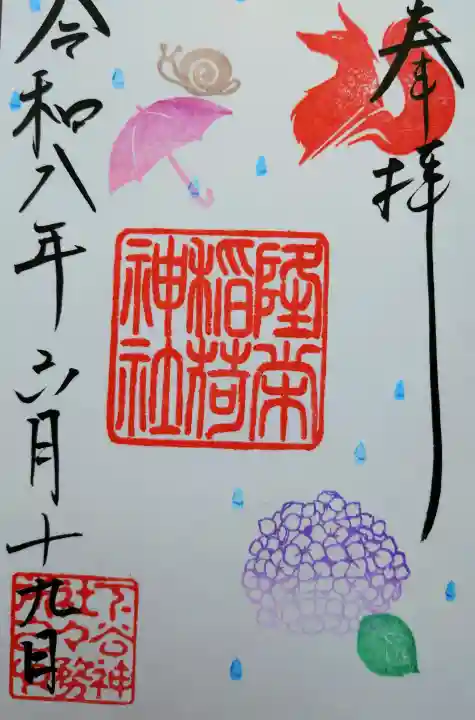 奉拝
隆栄
稲荷
神社
令和八年六月十九日
下谷神
社々務